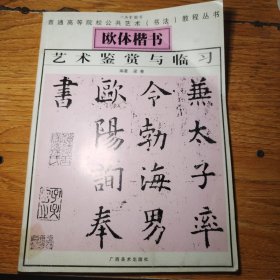 普通高等院校公共艺术（书法）教程丛书
欧体楷书
艺术鉴赏与临习
兼太子率
令勃海男
歐陽詢奉
書
广西美术出版社